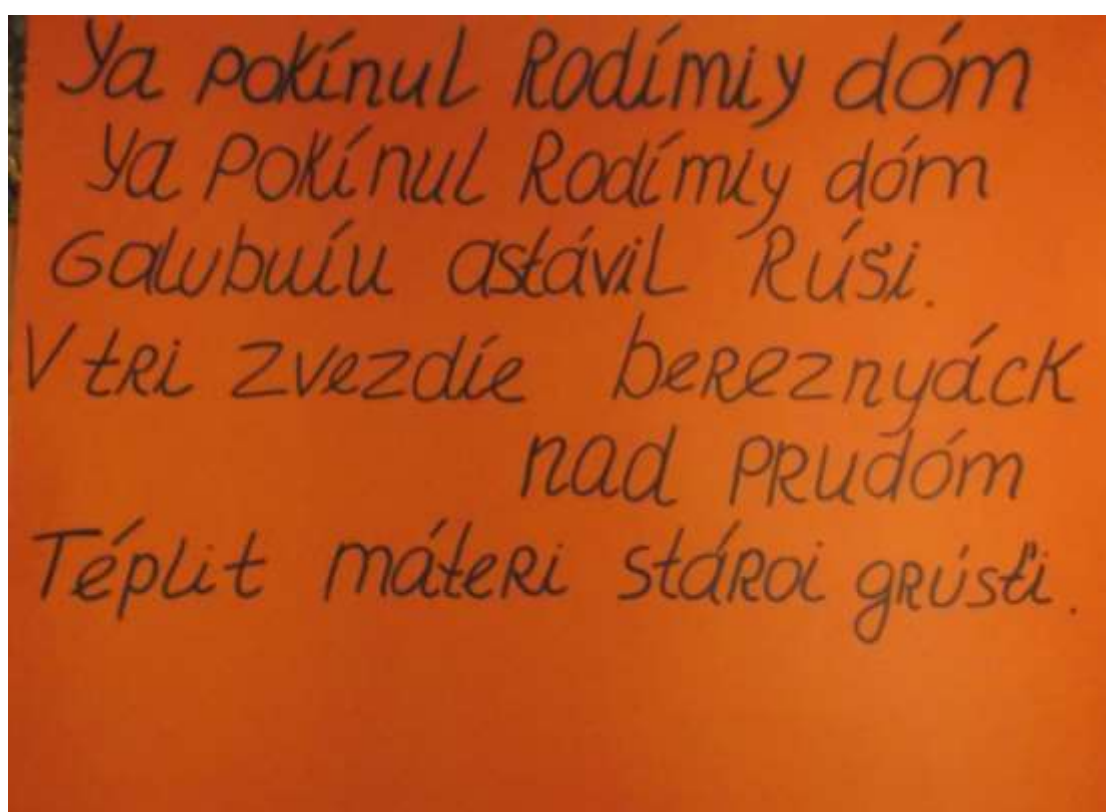 Ya pokínul Rodímiy dóm
Ya pokínul Rodímiy dóm
Galubuíu astávil Rúši.
V tri zvezdíe bereznyáck
nad prudóm
Téplit máteri stároi grústi.